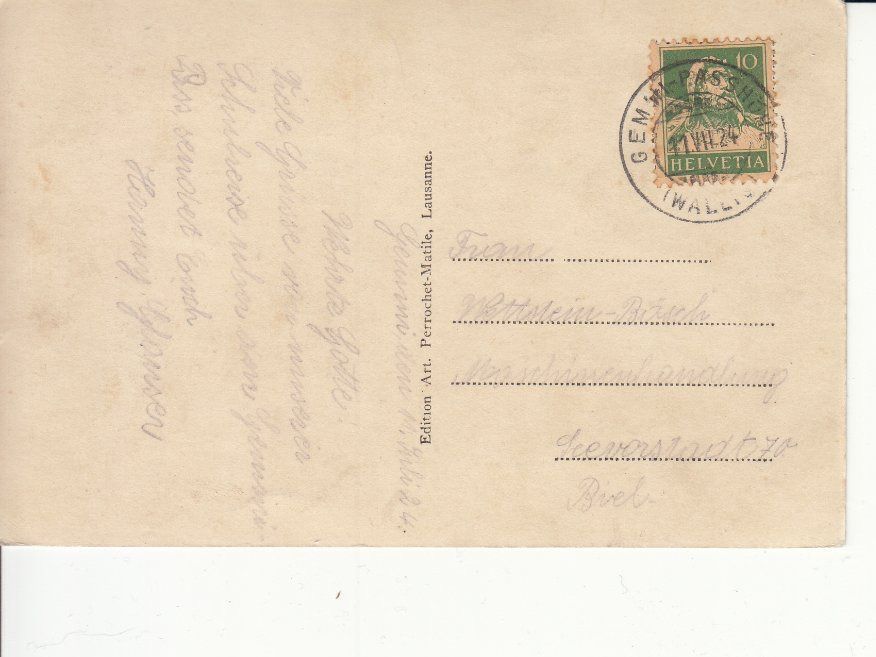 Gemmi den 11. Juli 24.
Werte Gotte!
Viele Grüsse von unserer
Schulreise über den Gemmi-
Pass sendet Euch
Hanny
Edition Art. Perrochet-Matile, Lausanne.
10
HELVETIA
GEMMI-PASSHÖHE
11.VII.24
(WALLIS)
Frau
Wettstein-Bösch
Maschinenhandlung
Seevorstadt 70
Biel.